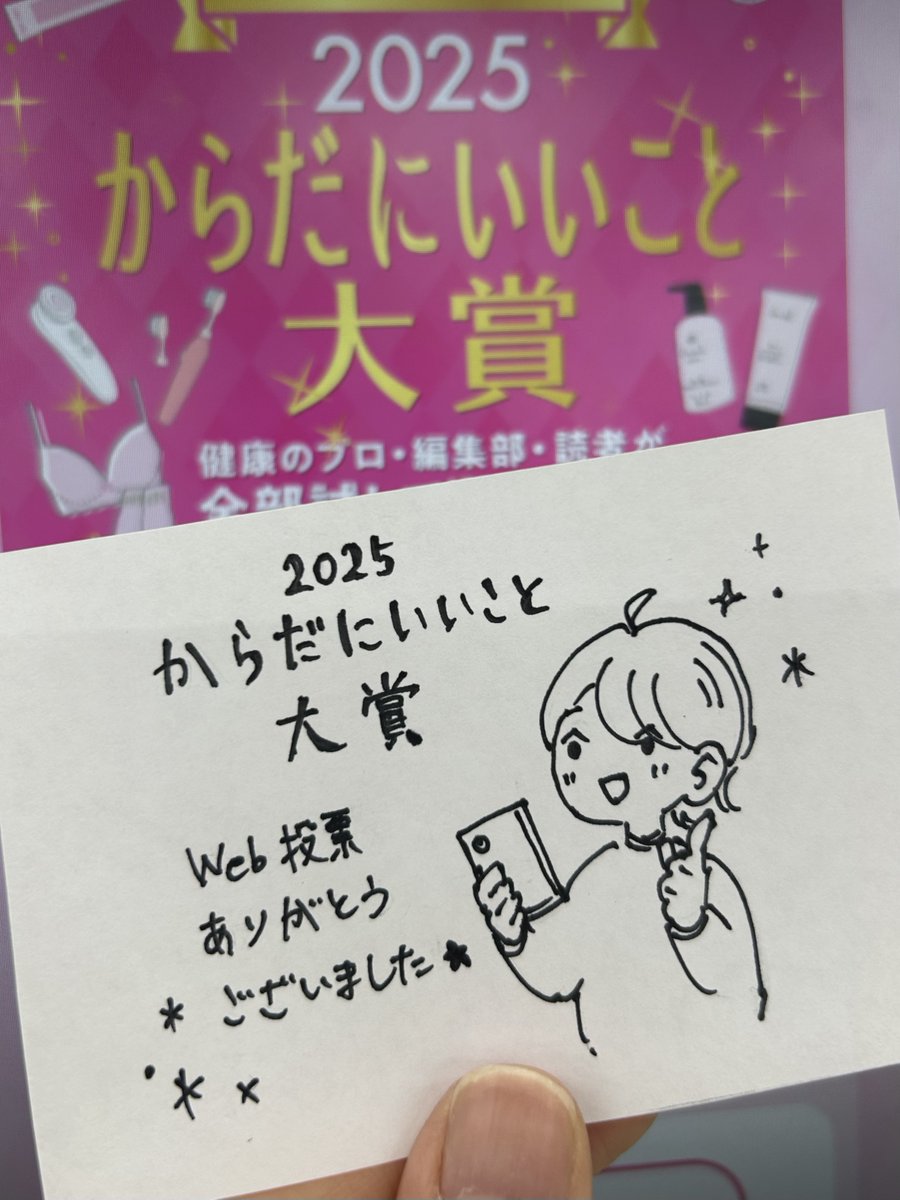 2025
からだにいいこと
大賞
健康のプロ・編集部・読者が
2025
からだにいいこと
大賞
Web投票
ありがとう
ございました